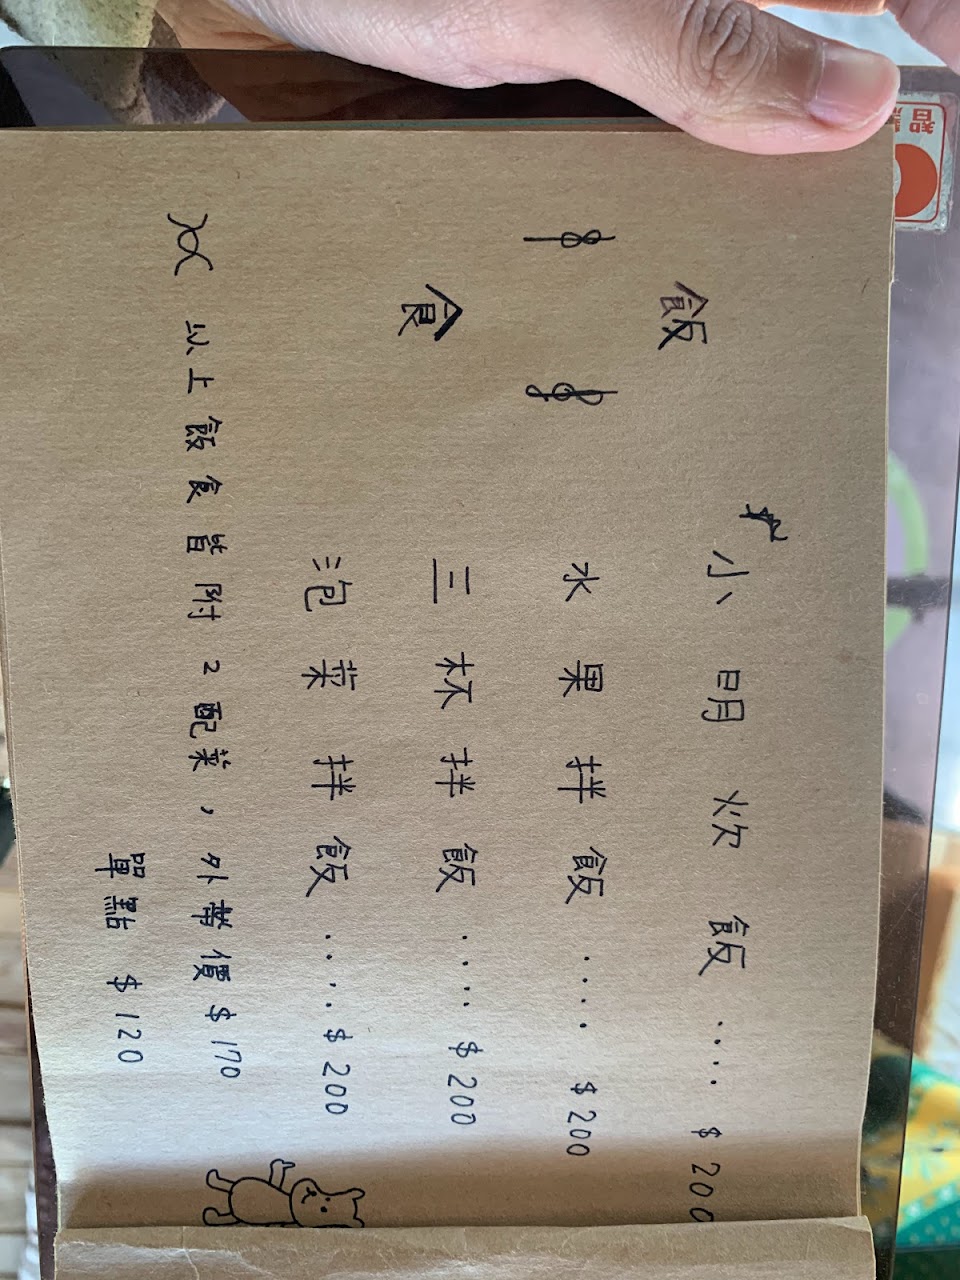 飯
食
小明炊飯....$200
水果拌飯....$200
三杯拌飯....$200
泡菜拌飯....$200
以上飯食皆附2配菜,外帶價$170
單點 $120